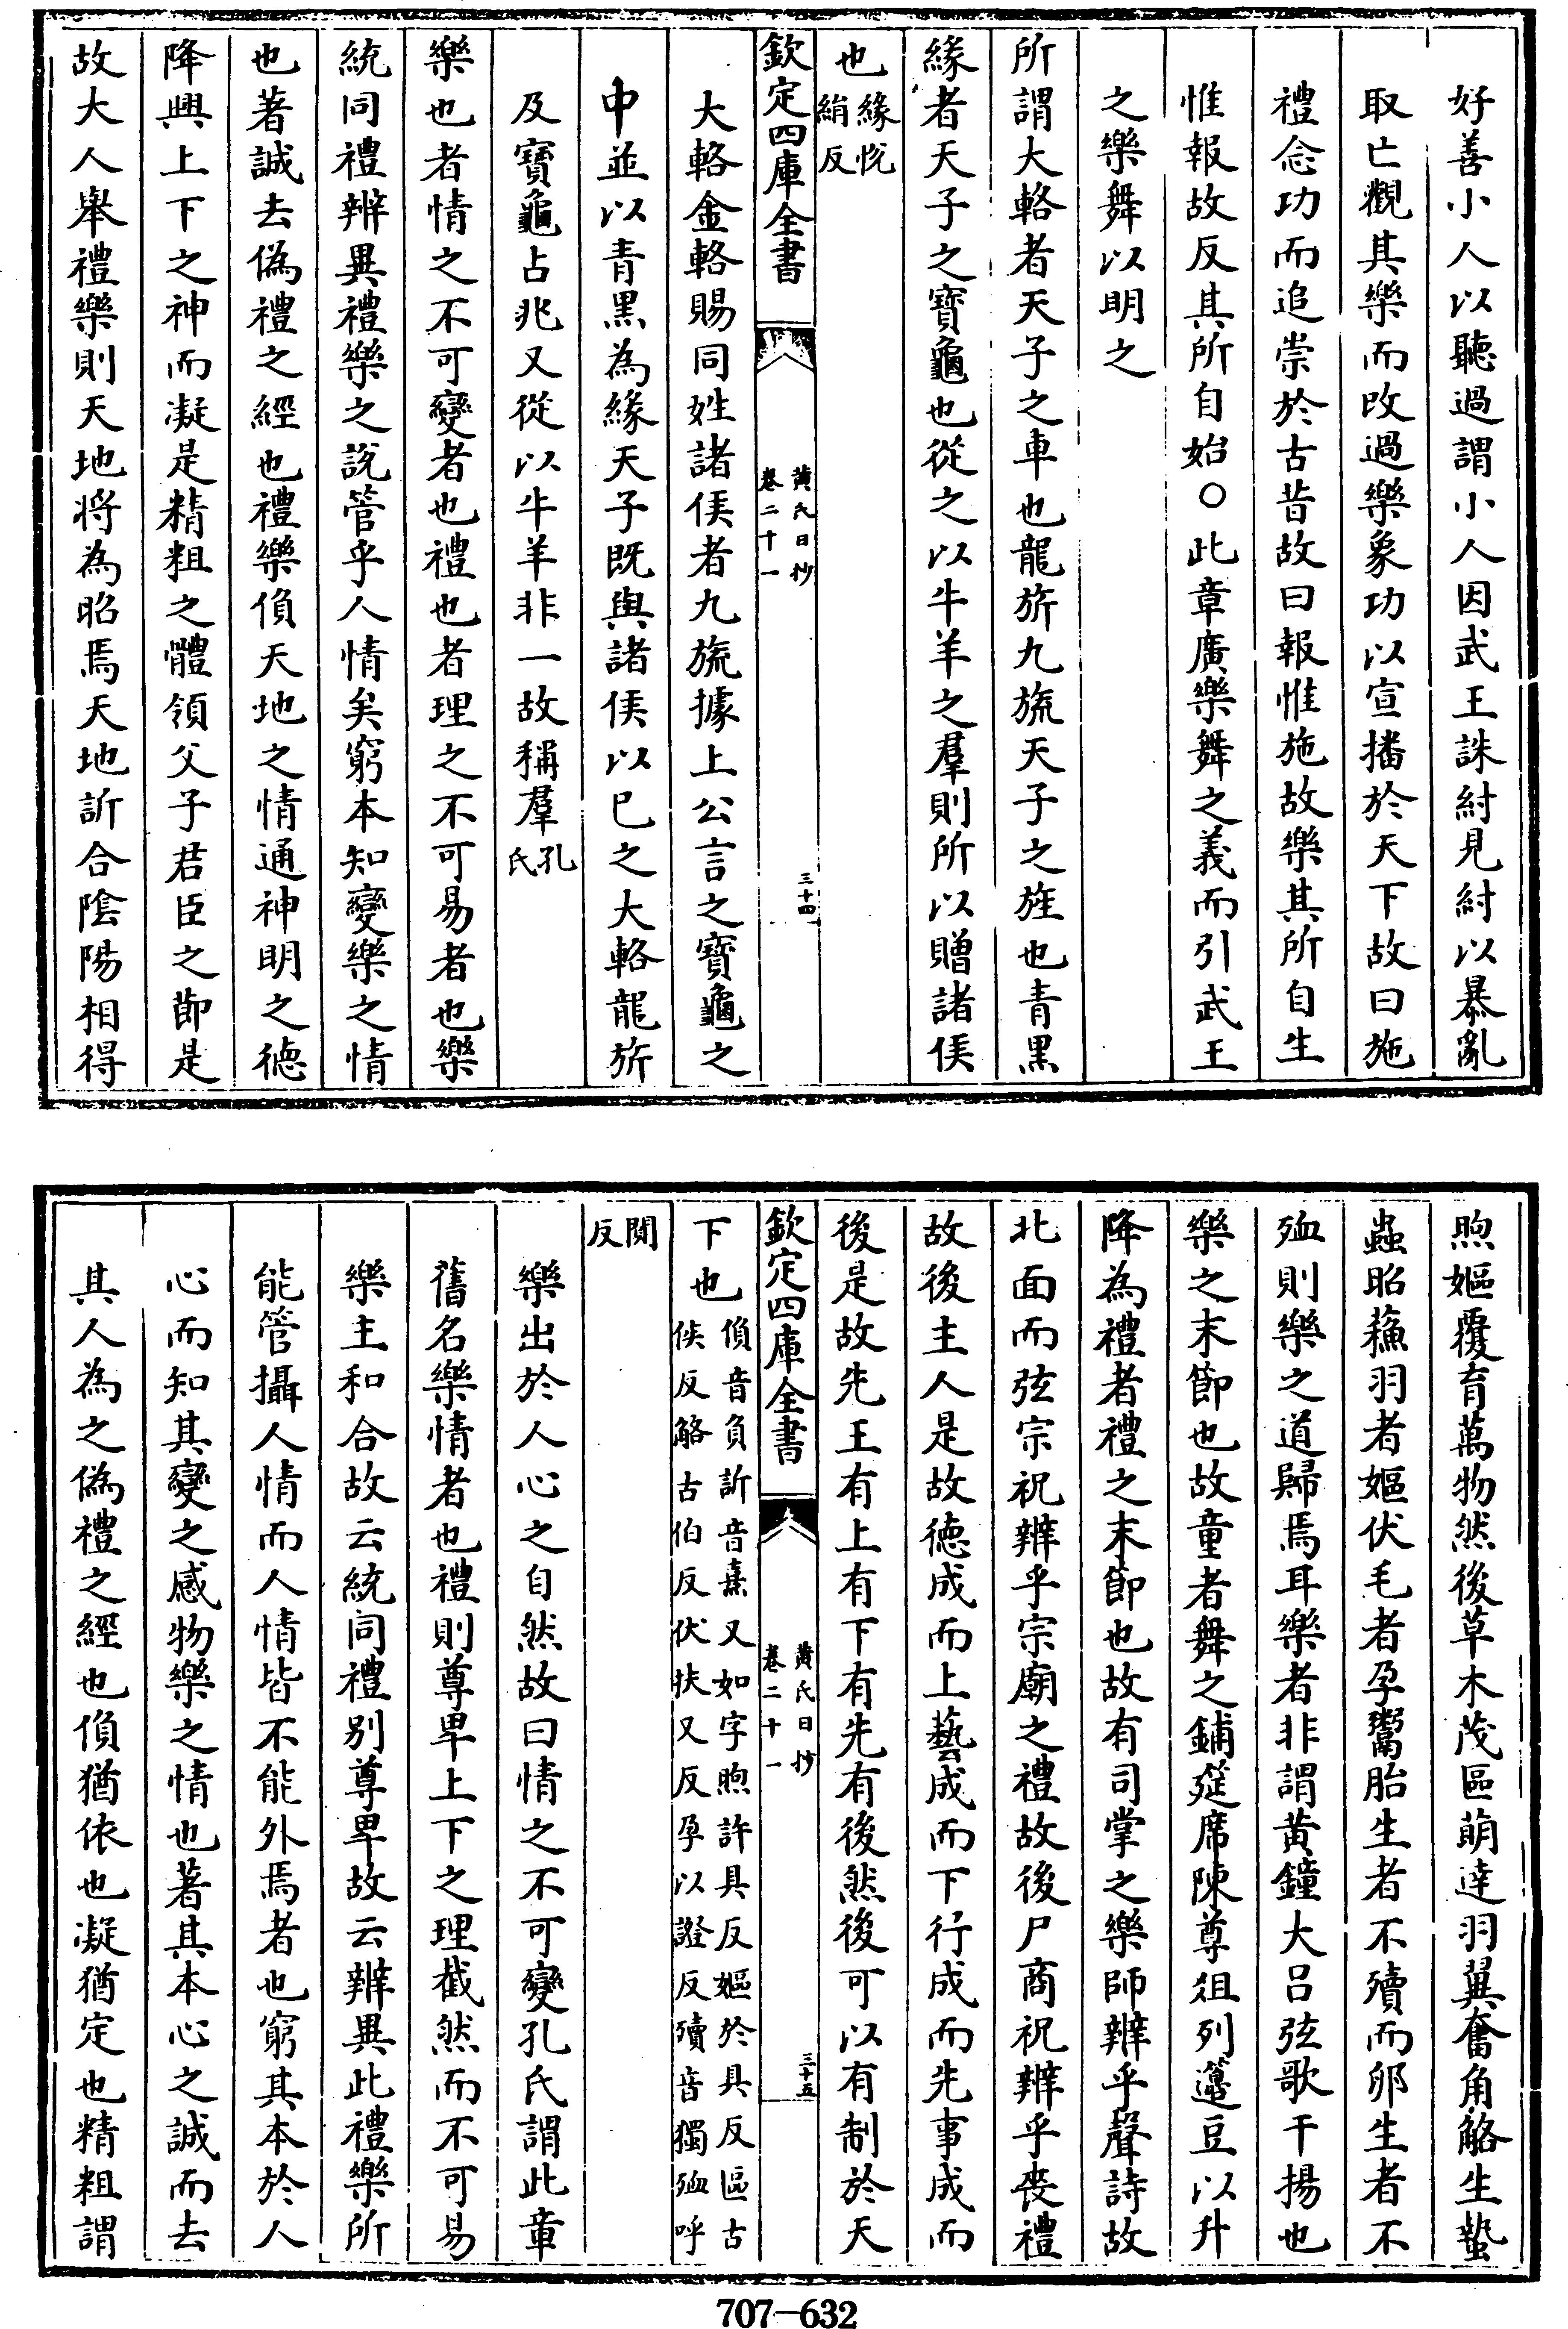 好善小人以聽過謂小人因武王誅紂見紂以暴亂
取亡觀其樂而改過樂象功以宣播於天下故曰施
禮念功而追崇於古昔故曰報惟施故樂其所自生
惟報故反其所自始○此章廣樂舞之義而引武王
之樂舞以明之
所謂大輅者天子之車也龍旂九旒天子之旌也青黑
緣者天子之寶龜也從之以牛羊之羣則所以贈諸侯
也緣悅
絹反
欽定四庫全書
黃氏日抄
卷二十一
三十四
大輅金輅賜同姓諸侯者九旒據上公言之寶龜之
中並以青黑為緣天子既與諸侯以已之大輅龍旂
及寶龜占兆又從以牛羊非一故稱羣孔
氏
樂也者情之不可變者也禮也者理之不可易者也樂
統同禮辨異禮樂之說管乎人情矣窮本知變樂之情
也著誠去偽禮之經也禮樂偩天地之情通神明之德
降興上下之神而凝是精粗之體領父子君臣之節是
故大人舉禮樂則天地將為昭焉天地訢合陰陽相得
煦嫗覆育萬物然後草木茂區萌達羽翼奮角觡生蟄
蟲昭蘇羽者嫗伏毛者孕鬻胎生者不殰而卵生者不
殈則樂之道歸焉耳樂者非謂黃鐘大呂弦歌干揚也
樂之末節也故童者舞之鋪筵席陳尊俎列籩豆以升
降為禮者禮之末節也故有司掌之樂師辨乎聲詩故
北面而弦宗祝辨乎宗廟之禮故後尸商祝辨乎喪禮
故後主人是故德成而上藝成而下行成而先事成而
後是故先王有上有下有先有後然後可以有制於天
欽定四庫全書
黃氏日抄
卷二十一
三十五
下也偩音負訢音熹又如字煦許具反嫗於具反區古
侯反觡古伯反伏扶又反孕以證反殰音獨殈呼
䦧
反
樂出於人心之自然故曰情之不可變孔氏謂此章
舊名樂情者也禮則尊卑上下之理截然而不可易
樂主和合故云統同禮別尊卑故云辨異此禮樂所
能管攝人情而人情皆不能外焉者也窮其本於人
心而知其變之感物樂之情也著其本心之誠而去
其人為之偽禮之經也偩猶依也凝猶定也精粗謂
707—632